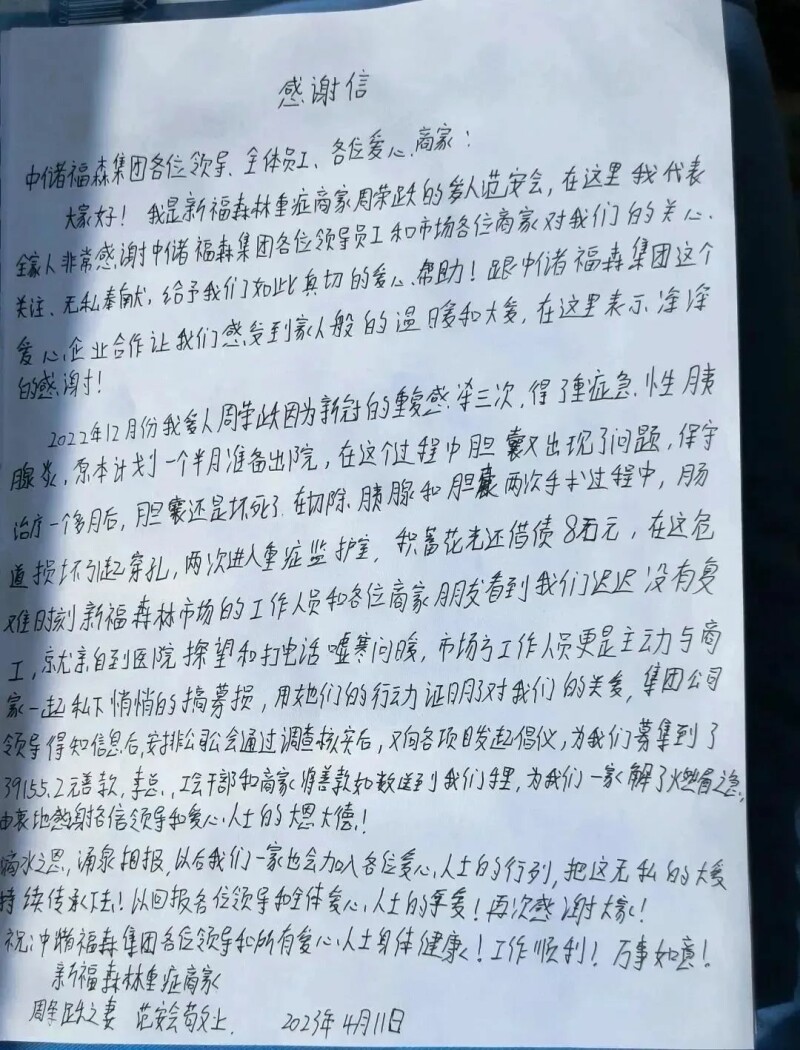 感谢信
中储福森集团各位领导、全体员工、各位爱心商家：
大家好！我是新福森林重症商家周荣跃的爱人范安会，在这里我代表
全家人非常感谢中储福森集团各位领导员工和市场各位商家对我们的关心、
关注、无私奉献，给予我们如此真切的爱心帮助！跟中储福森集团这个
爱心企业合作让我们感受到家人般的温暖和大爱，在这里表示深深
的感谢！
2022年12月份我爱人周荣跃因为新冠的重复感染三次，得了重症急性胰
腺炎，原本计划一个半月准备出院，在这个过程中胆囊又出现了问题，保守
治疗一个多月后，胆囊还是坏死了.在切除胰腺和胆囊两次手术过程中，肠
道损坏引起穿孔，两次进入重症监护室，积蓄花光还借债8万元，在这危
难时刻新福森林市场的工作人员和各位商家朋友看到我们迟迟没有复
工，就亲自到医院探望和打电话嘘寒问暖，市场方工作人员更是主动与商
家一起私下悄悄的搞募损，用她们的行动证明了对我们的关爱，集团公司
领导得知信息后，安排公司公会通过调查核实后，又向各项目发起倡仪，为我们募集到了
39155.2元善款，李总、工会干部和商家将善款如数送到我们手里，为我们一家解了燃眉之急，
由衷地感谢各信领导和爱心人士的大恩大德！
滴水之恩，涌泉相报，以后我们一家也会加入各位爱心人士的行列，把这无私的大爱
持续传承下去！以回报各位领导和全体爱心人士的厚爱！再次感谢大家！
祝：中储福森集团各位领导和所有爱心人士身体健康！工作顺利！万事如意！
新福森林重症商家
周荣跃之妻 范安会敬上. 2023年4月11日